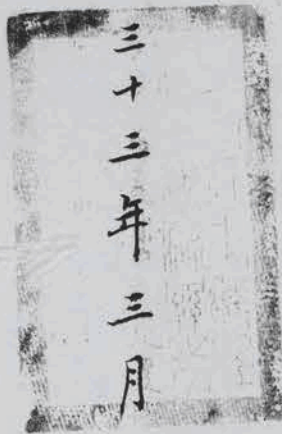 三十三年三月